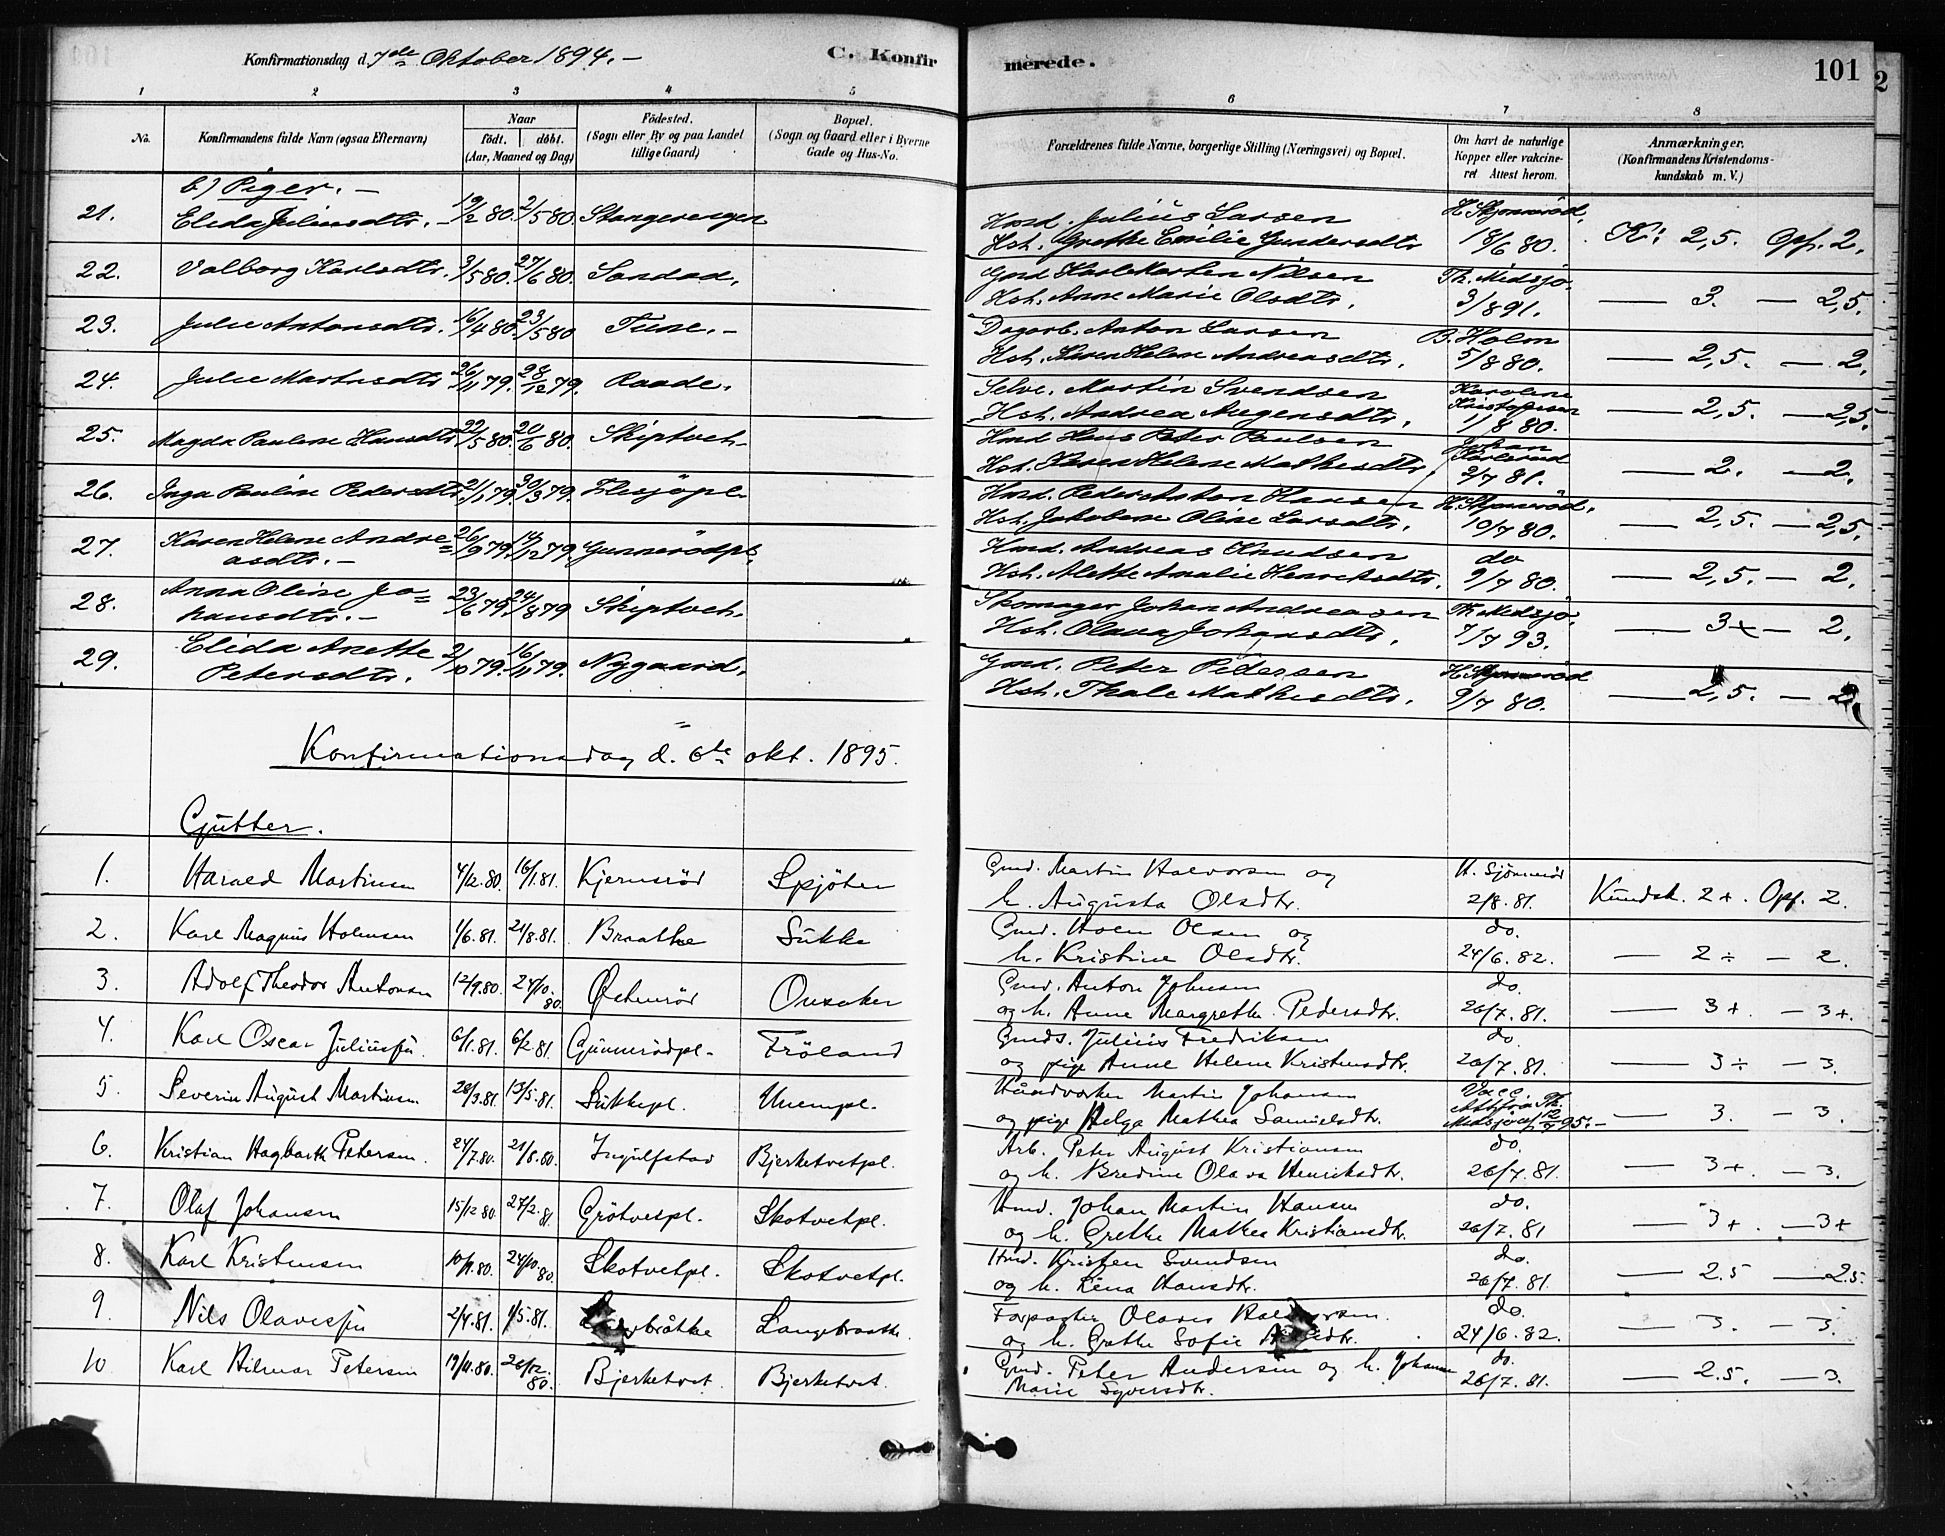 Konfirmationsdag d. 7de Oktober 1894. –
C. Konfirmerede.
101
1 2 3 4 5 6 7 8
No. Konfirmandens fulde Navn (ogsaa Efternavn) Naar født. døbt. (Aar, Maaned og Dag) Fødested. (Sogn eller By og paa Landet tillige Gaard) Bopæl. (Sogn og Gaard eller i Byerne Gade og Hus-No. Forældrenes fulde Navne, borgerlige Stilling (Næringsvei) og Bopæl. Om havt de naturlige Kopper eller vakcineret Attest herom. Anmærkninger. (Konfirmandens Kristendomskundskab m. V.)
b) Piger. –
21. Elida Juliusdtr. – 19/2 80. 2/5 80. Stangerengen Hmd. Julius Larsen
Hst. Grethe Emilie Gundersdtr 18/6 80. K: 2,5. Opf. 2.
22. Valborg Karlsdtr. 3/5 80. 27/6 80. Sandad. Gmd Karl Martin Nilsen Th. Midsjø.
Hst. Anne Marie Olsdtr. 3/8 91. — 3. — 2,5.
23. Julie Antonsdtr. 16/4 80. 23/5 80 Tune. – Dagarb. Anton Larsen B. Holm
Hst. Karen Helene Andreasdtr. 5/8 80. — 2,5. — 2.
24. Julie Martinsdtr 26/11 79. 28/12 79. Raade. Selve. Martin Svendsen Karoline Kristofersen
Hst. Andrea Mogensdtr. 1/8 80. — 2,5. — 2,5.
25. Magda Pauline Hansdtr 22/5 80. 20/6 80. Skiptvet. Hmd Hans Peter Paulsen Johan Karlsrud
Hst. Karen Helene Mathisdtr 2/7 81. — 2. — 2.
26. Inga Pauline Pedersdtr. 21/1 79. 30/3 79. Elisjöpl. Hmd. Peder Anton Hansen
Hst. Jakobine Oline Larsdtr. 10/7 80. — 2,5. — 2,5.
27. Karen Helene Andreasdtr. – 26/9 79. 14/12 79. Gunnerödpl. Hmd. Andreas Knudsen do
Hst. Alette Amalie Henriksdtr. 9/7 80. — 2,5. — 2.
28. Anna Oline Johansdtr. – 23/6 79. 24/8 79 Skiptvet. Skomager Johan Andreasen Th. Midsjø.
Hst. Olava Johansdtr. 7/7 93. — 3+ — 2.
29. Elida Anette Petersdtr. 2/10 79. 16/11 79. Nygaard. Gmd. Peter Pedersen
Hst. Thale Mathisdtr. 9/7 80. — 2,5. — 2.
Konfirmationsdag d. 6te okt. 1895.
Gutter.
1. Harald Martinsen 4/12.80. 16/1.81. Kjernsröd Spjöten Gmd. Martin Halvorsen og
h. Augusta Olsdtr. 2/8.81. Kundsk. 2+. Opf. 2.
2. Karl Magnus Holmsen 1/6.81. 21/8.81. Braathe Sukke Gmd. Holm Olsen og do.
h. Kristine Olsdtr. 24/6.82. — 2÷ — 2.
3. Adolf Theodor Antonsen 12/9.80. 24/10.80. Østenröd Ousaker Gmd. Anton Johnsen do.
og h. Anne Margrethe Pedersdtr. 26/7.81. — 3+. — 3+.
4. Karl Oscar Juliussen. 6/1.81. 6/2.81. Gunnerödpl. Fröland Gmds. Julius Fredriksen do.
og pige Anne Helene Kristensdtr. 26/7.81. — 3÷ — 3.
5. Severin August Martinsen 28/3.81. 15/5.81. Sukkepl. Unempl. Haandvorker Martin Johansen Vacc. Att. fra Th. Midsjø af 12/7 95. –
og pige Helga Mathea Samuelsdtr. — 3. — 3.
6. Kristian Hagbarth Petersen. 24/7.80. 21/8.80. Ingulfstad Bjerketvetpl. Arb. Peter August Kristiansen do.
og h. Bredine Olava Henriksdtr. 26/7.81. — 3+. — 3.
7. Olaf Johansen 15/12 80. 27/2.81. Grötvetpl. Skotvetpl. Hmd. Johan Martin Hansen do.
og h. Grethe Mathea Kristiansdtr. 26/7.81 — 3+. — 3+
8. Karl Kristensen 10/9.80. 24/10.80. Skotvetpl. Skotvetpl. Hmd. Kristen Svendsen do.
og h. Lina Hansdtr. 26/7.81. — 2.5 — 2.5.
9 Nils Olavessen 2/4.81. 1/5.81. Langbraathe Forpagter Olaves do.
og h. Grethe Sofie 24/6.82. — 3. — 3.
10 Karl Hilmar Petersen 19/11.80. 26/12.80. Bjerketvet Bjerketvet. Gmd. Peter Andersen og h. Johanne do.
Marie Syversdtr. 26/7.81. — 2.5. — 3.